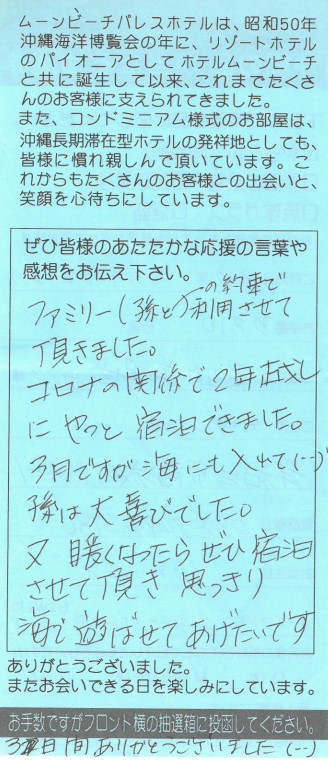 ムーンビーチパレスホテルは、昭和50年
沖縄海洋博覧会の年に、リゾートホテル
のパイオニアとしてホテルムーンビーチ
と共に誕生して以来、これまでたくさ
んのお客様に支えられてきました。
また、コンドミニアム様式のお部屋は、
沖縄長期滞在型ホテルの発祥地としても、
皆様に慣れ親しんで頂いています。こ
れからもたくさんのお客様との出会いと、
笑顔を心待ちにしています。
ぜひ皆様のあたたかな応援の言葉や
感想をお伝え下さい。
の約束で
ファミリー(孫と利用させて
頂きました。
コロナの関係で2年越し
にやっと宿泊できました。
3月ですが海にも入れて(--)
孫は大喜びでした。
又暖くなったらぜひ宿泊
させて頂き思っきり
海で遊ばせてあげたいです
ありがとうございました。
またお会いできる日を楽しみにしています。
お手数ですがフロント横の抽選箱に投函してください。
日間ありがとうございました(--)